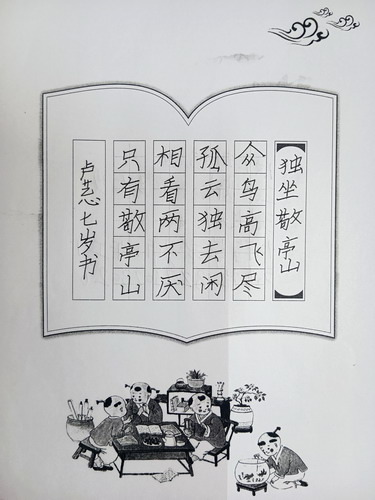 独坐敬亭山
众鸟高飞尽
孤云独去闲
相看两不厌
只有敬亭山
卢 七岁书